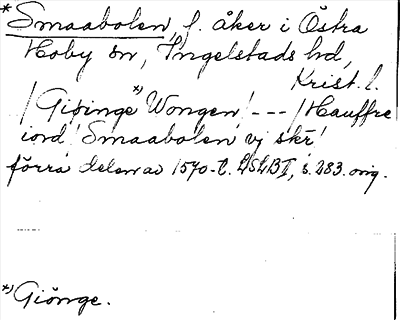 *Smaabolen, f. åker i Östra
Hoby sn, Ingelstads hd,
Krist. l.
/Giöinge*) Wongen! --- /Hauffre
iord! Smaabolen vj skr!
förra delen av 1570-t. LSLB II, s. 283. orig.
*) Giönge.